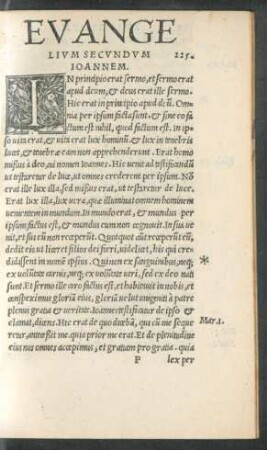 EVANGE
LIVM SECVNDVM 225.
IOANNEM.
IN principio erat sermo, et sermo erat
apud deum, & deus erat ille sermo.
Hic erat in principio apud deū. Om-
nia per ipsum facta sunt. & sine eo fa-
ctum est nihil, quod factum est. In ip-
so uita erat, & uita erat lux hominū. & lux in tenebris
lucet, & tenebræ eam non apprehenderunt. Erat homo
missus à deo, cui nomen Ioannes. Hic uenit ad testificandū
ut testaretur de luce, ut omnes crederent per ipsum. Non
erat ille lux illa, sed missus erat, ut testaretur de luce.
Erat lux illa, lux uera, quæ illuminat omnem hominem
uenientem in mundum. In mundo erat, & mundus per
ipsum factus est, & mundus eum non cognouit. In sua ue-
nit, et sui eū non receperūt. Quotquot aūt receperūt eū,
dedit eis ut liceret filios dei fieri, uidelicet, his qui cre-
didissent in nomē ipsius. Qui non ex sanguinibus, neq;
ex uolūtate carnis, neq; ex uolūtate uiri, sed ex deo nati
sunt. Et sermo ille caro factus est, et habitauit in nobis, et
conspeximus gloriā eius, gloriā uelut unigeniti à patre
plenus gratia & ueritate. Ioannes testificatur de ipso &
clamat, dicens. Hic erat de quo dicebā, qui cū me seque
retur, antecessit me. quia prior me erat. Et de plenitudine
eius nos omnes accepimus, et gratiam pro gratia. quia
*
Mar.1.
P lex per